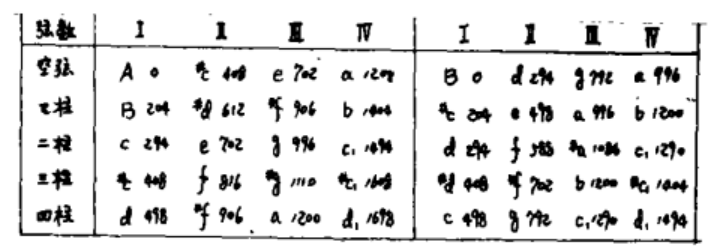 弦数 I II III IV I II III IV
空弦 A 0 #c 408 e 702 a 1200 B 0 d 294 g 792 a 996
B 204 #d 612 #f 906 b 1404 #c 204 e 498 a 996 b 1200
二柱 c 294 e 702 g 996 c₁ 1494 d 294 f 588 #a 1086 c₁ 1290
三柱 #c 408 f 816 #g 1110 #c₁ 1608 #d 408 #f 702 b 1200 #c₁ 1404
四柱 d 498 #f 906 a 1200 d₁ 1698 c 498 g 792 c₁ 1290 d₁ 1494